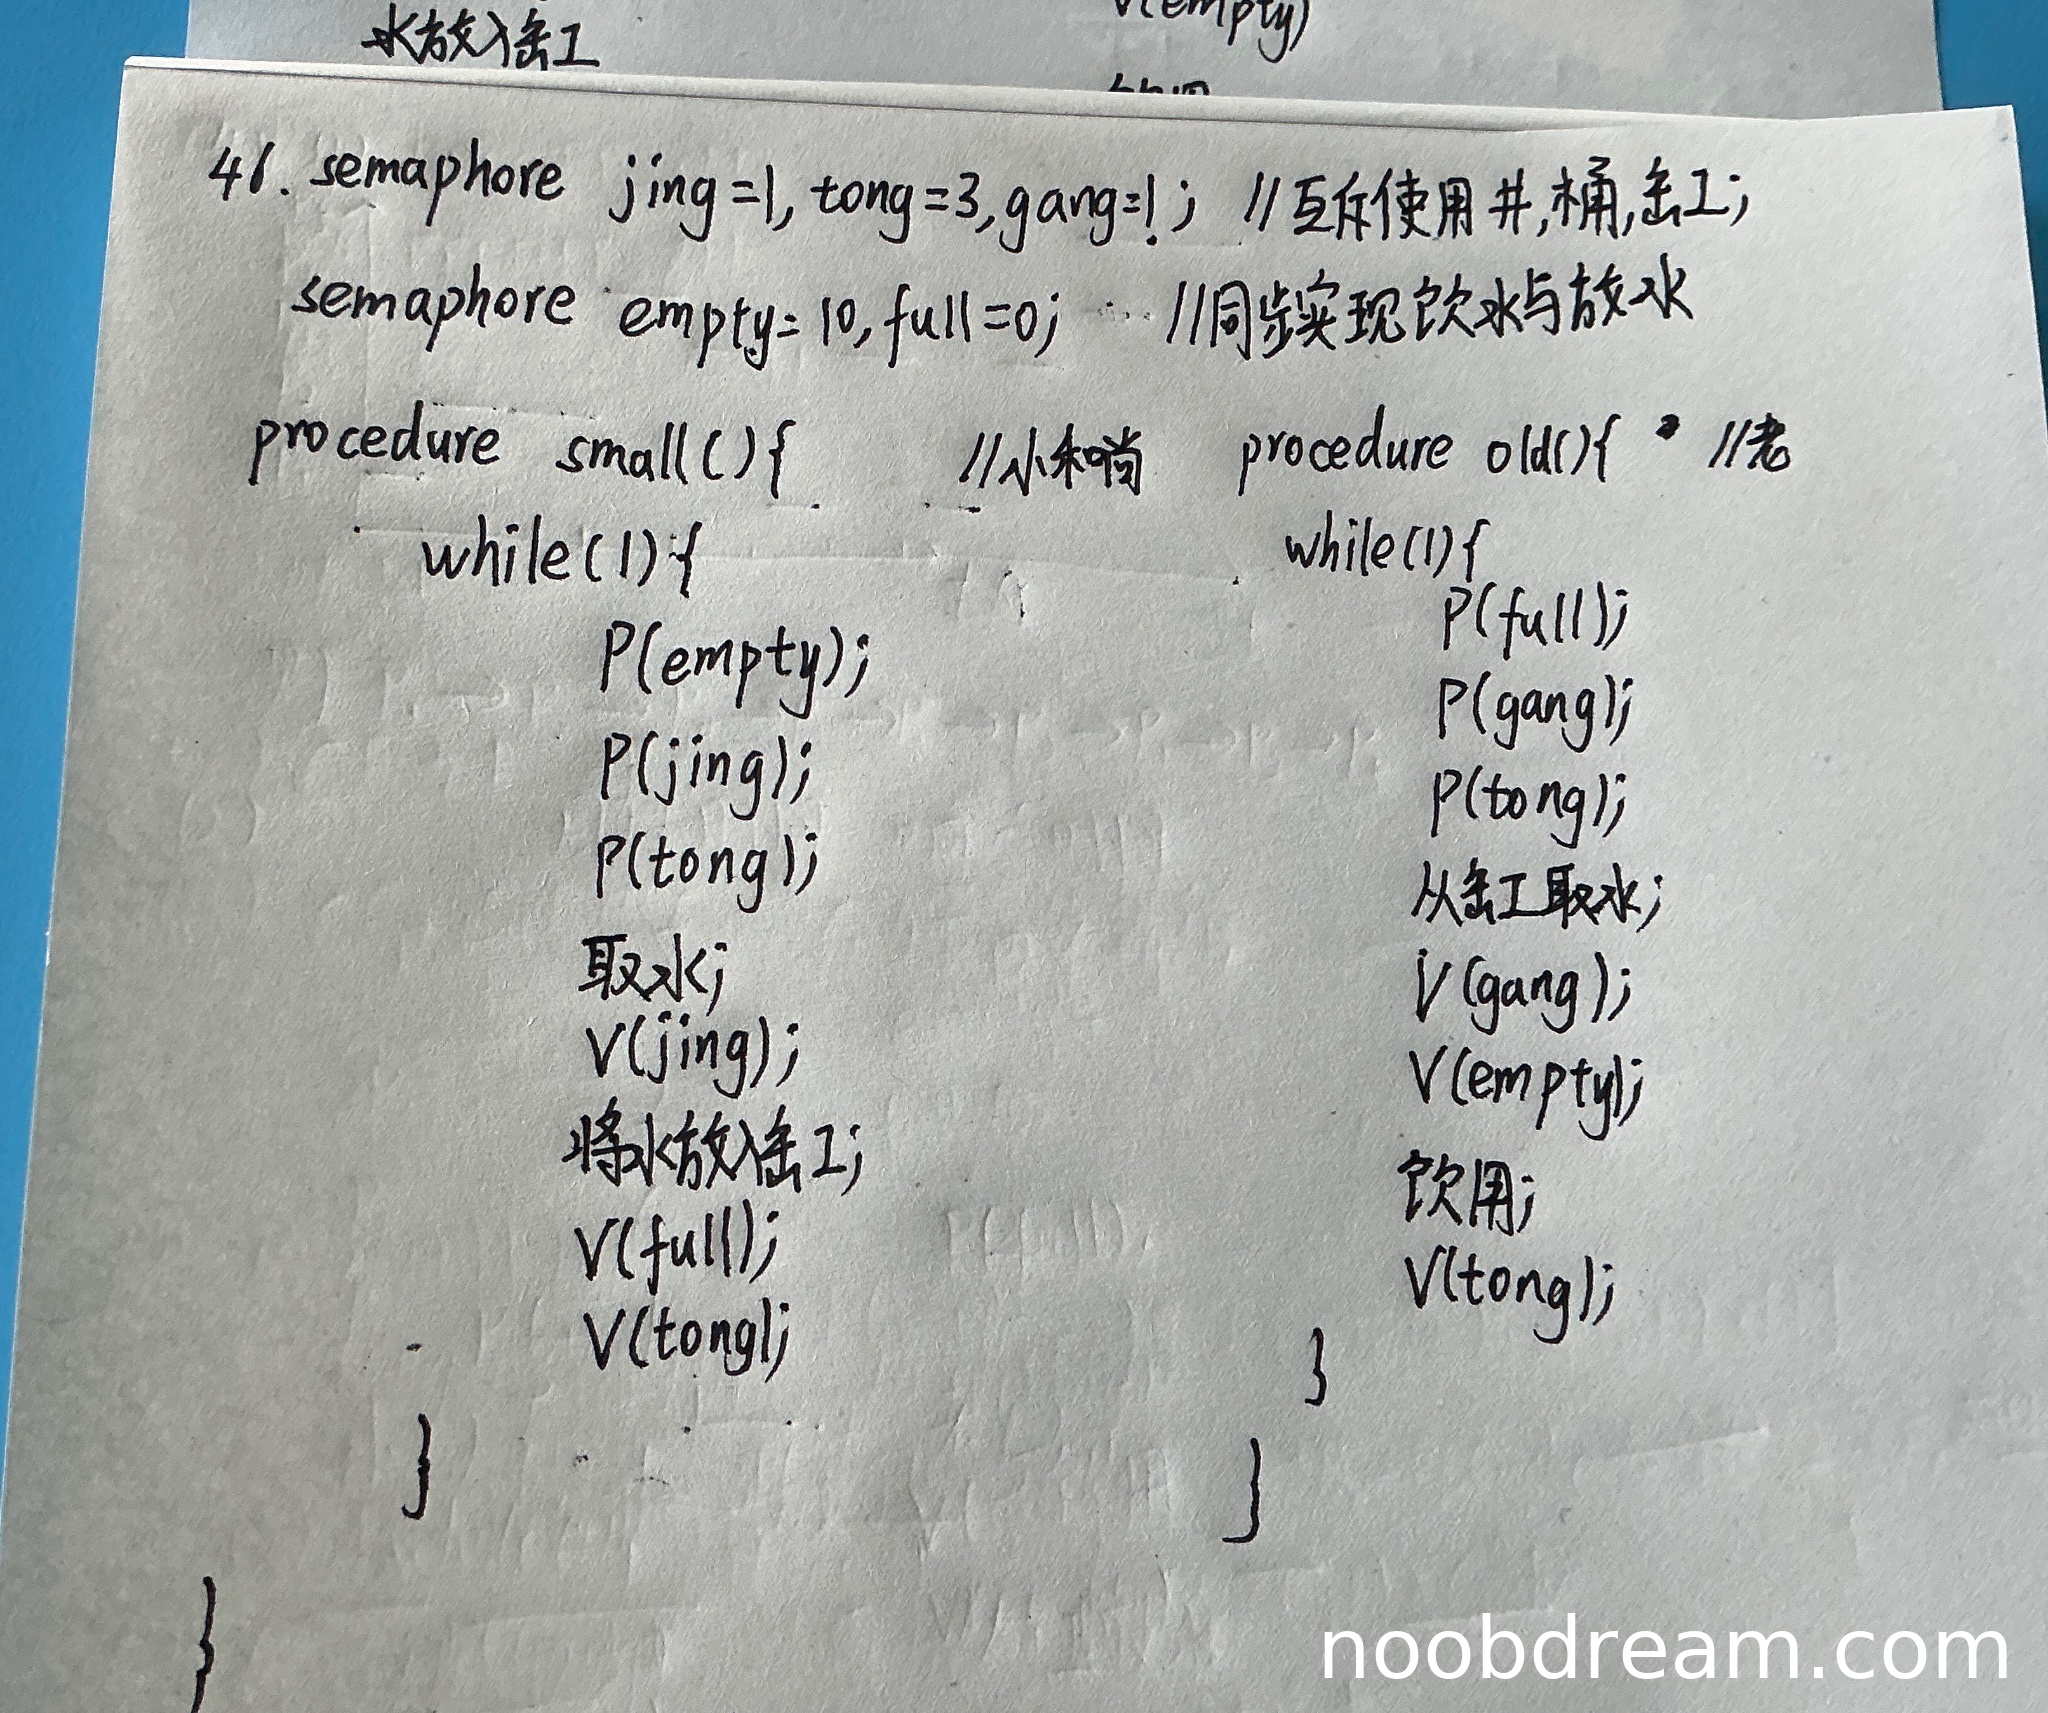 水放入缸
V(empty)
46. semaphore jing=1, tong=3, gang=1; //互斥使用井,桶,缸;
semaphore empty=10, full=0; //同步实现饮水与放水
procedure small(){ //小和尚
while(1){
P(empty);
P(jing);
P(tong);
取水;
V(jing);
将水放入缸;
V(full);
V(tong);
}
}
procedure old(){ //老
while(1){
P(full);
P(gang);
P(tong);
从缸取水;
V(gang);
V(empty);
饮用;
V(tong);
}
}
noobdream.com